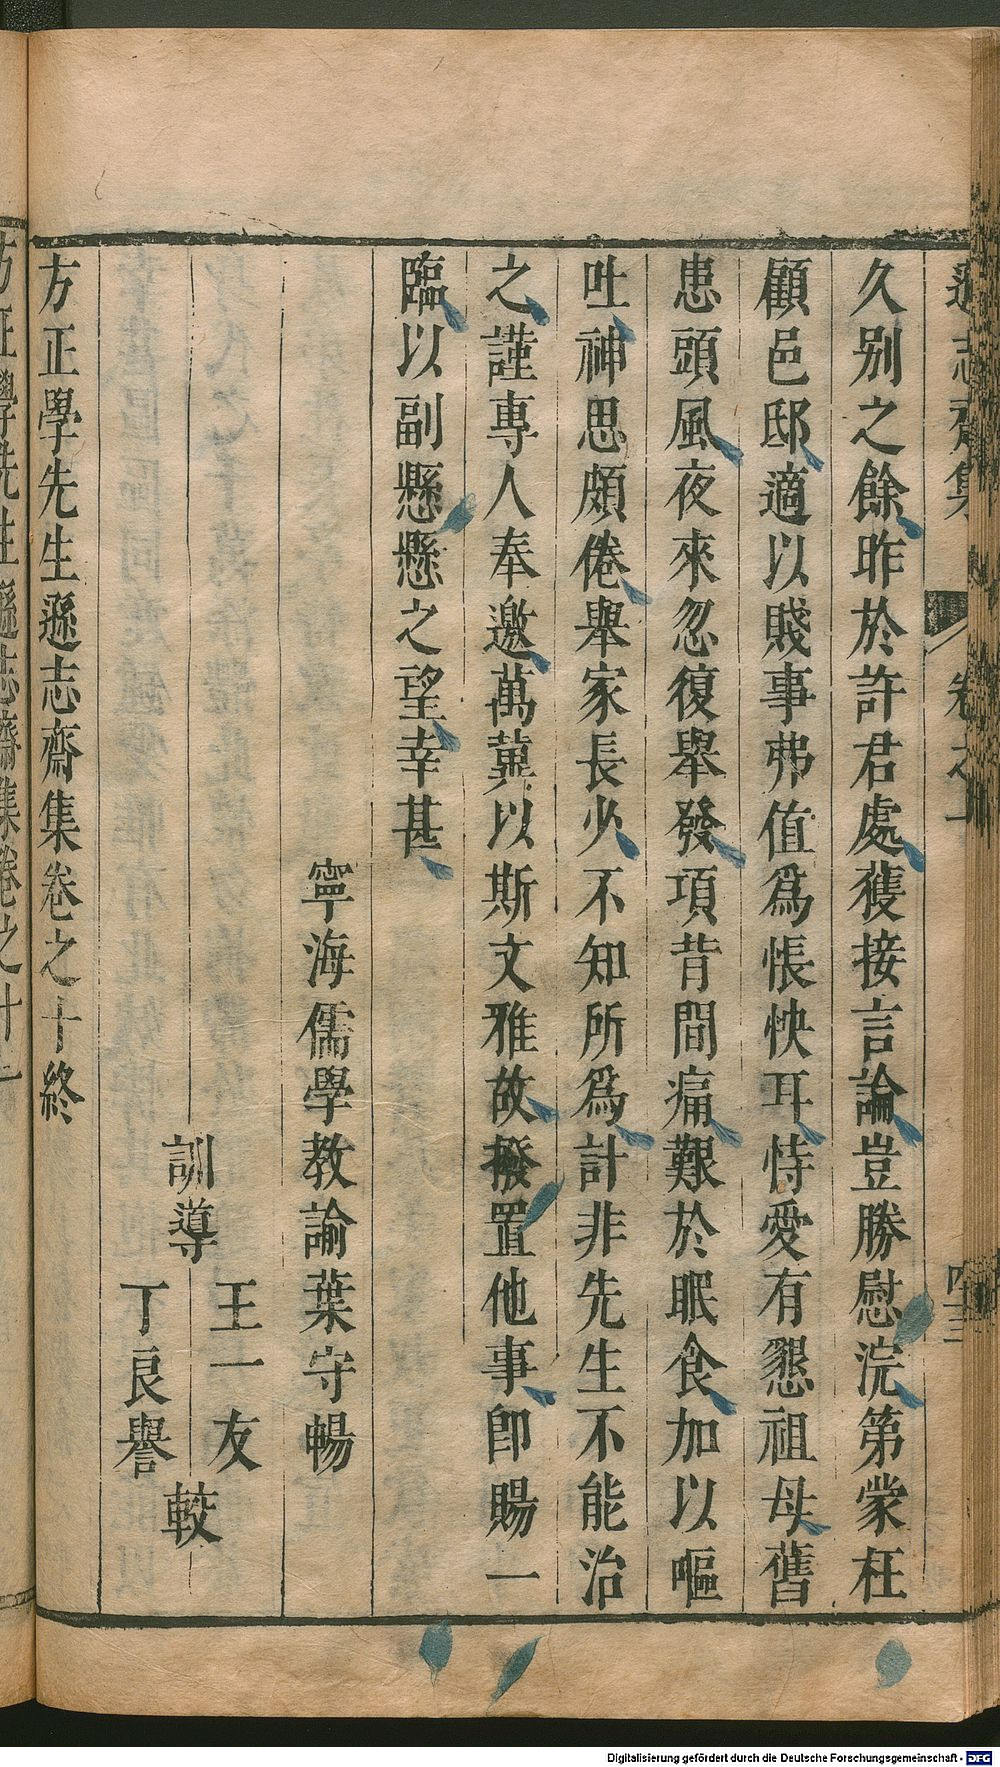 遜志齋集
卷之十
四十三
久别之餘昨於許君處獲接言論豈勝慰浣第蒙枉
顧邑邸適以賤事弗值爲悵怏耳恃愛有懇祖母舊
患頭風夜來忽復舉發項背間痛艱於眠食加以嘔
吐神思頗倦舉家長少不知所爲計非先生不能治
之謹專人奉邀萬冀以斯文雅故撥置他事即賜一
臨以副懸懸之望幸甚
寧海儒學教諭葉守暢
訓導
王一友
丁良譽
較
方正學先生遜志齋集卷之十終
方正學先生遜志齋集卷之十
Digitalisierung gefördert durch die Deutsche Forschungsgemeinschaft - DFG